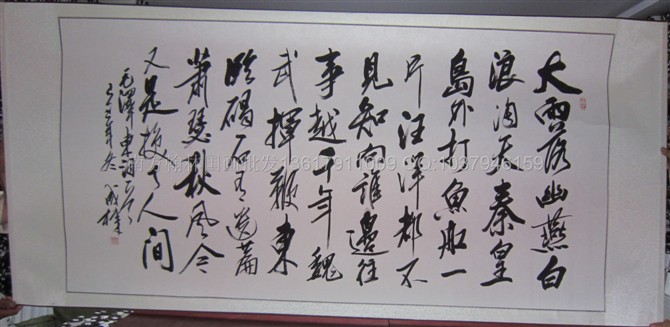 大雨落幽燕白
浪滔天秦皇
島外打魚船一
片汪洋都不
見知向誰邊往
事越千年魏
武揮鞭東
臨碣石有遺篇
蕭瑟秋風今
又是換了人間
毛澤東詞
国画批发13617911609 QQ:1037946159